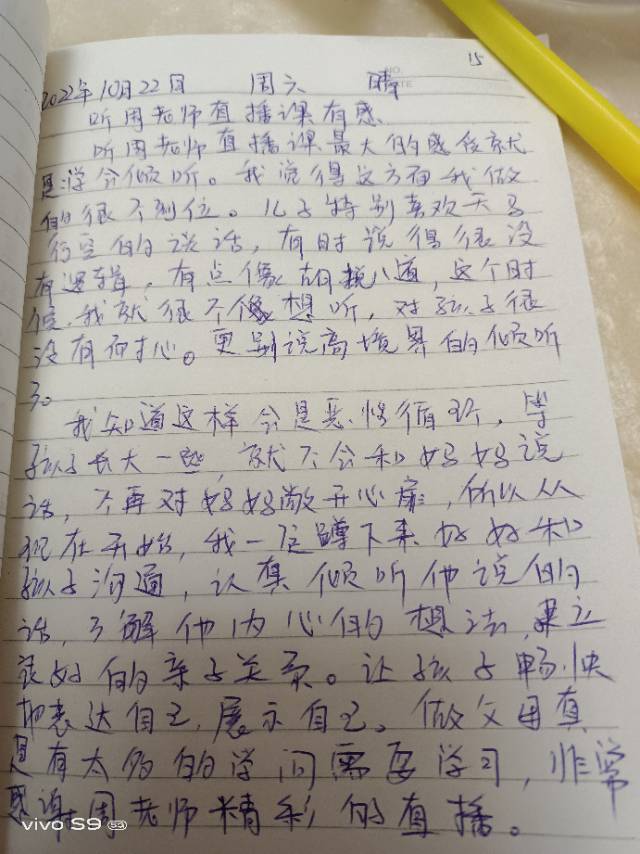 15
2022年10月22日 周六 晴
听周老师直播课有感
听周老师直播课最大的感受就
是学会倾听。我觉得这方面我做
的很不到位。儿子特别喜欢天马
行空的说话，有时说得很没
有逻辑，有点像胡说八道，这个时
候，我就很不想听，对孩子很
没有耐心。更别说高境界的倾听
了。
我知道这样会是恶性循环，等
孩子长大一些就不会和妈妈说
话，不再对妈妈敞开心扉，所以从
现在开始，我一定蹲下来好好和
孩子沟通，认真倾听他说的
话，了解他内心的想法，建立
良好的亲子关系。让孩子畅快
地表达自己，展示自己。做父母真
是有太多的学问需要学习，非常
感谢周老师精彩的直播。
vivo S9